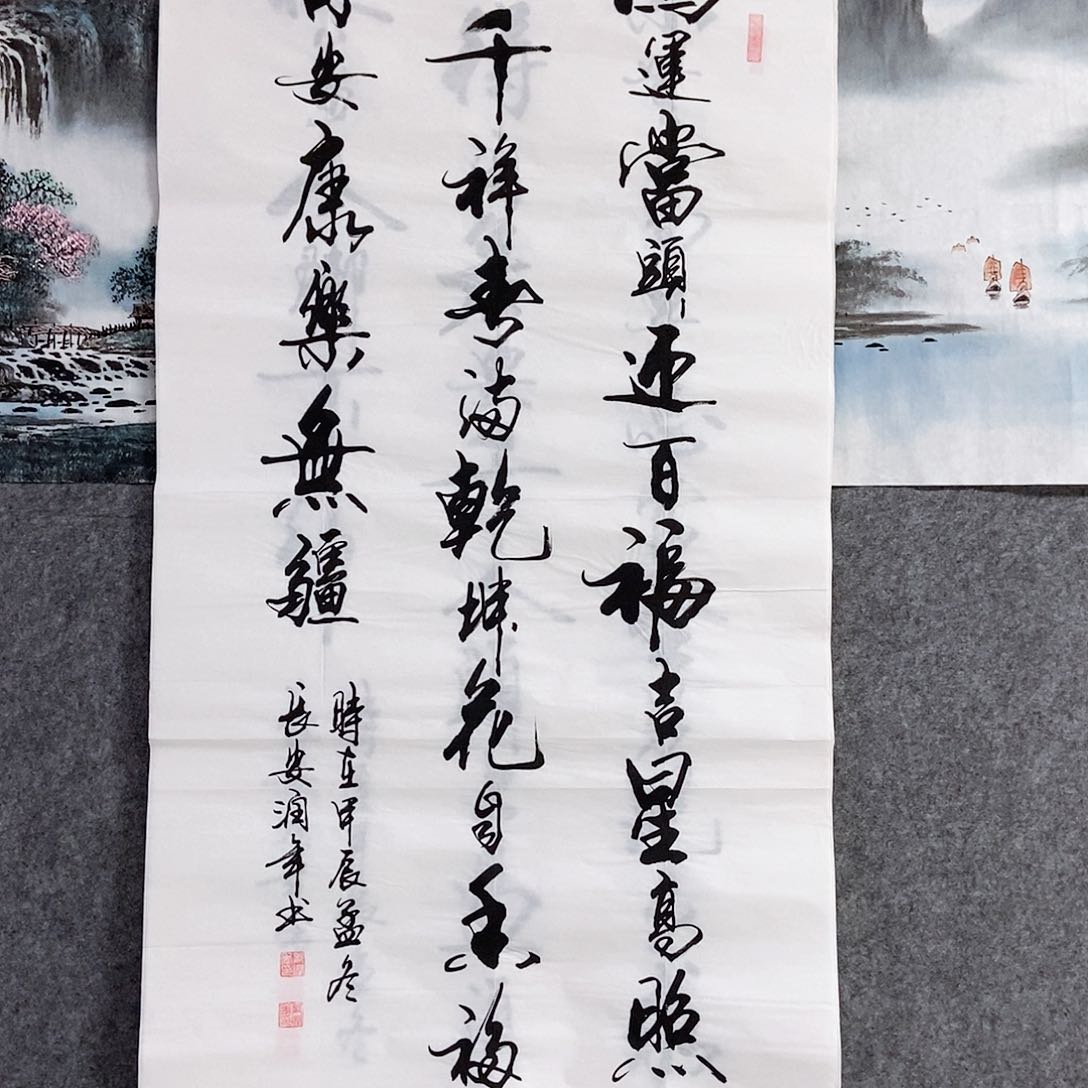 鴻運當頭迎百福吉星高照
千祥春滿乾坤花自香福
安康樂無疆
時在甲辰孟冬
長安潤年书